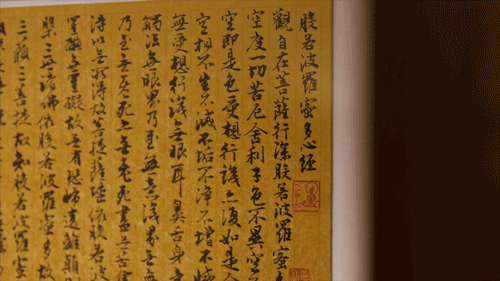 般若波羅蜜多心經
觀自在菩薩行深般若波羅蜜多
空度一切苦厄舍利子色不異空
空即是色受想行識亦復如是
空相不生不滅不垢不淨不增不減
無受想行識無眼耳鼻舌身意
觸法無眼界乃至無意識界無無
乃至無老死亦無老死盡無苦集
得以無所得故菩提薩埵依般若波
罣礙無罣礙故無有恐怖遠離顛倒
槃三世諸佛依般若波羅蜜多故
三藐三菩提故知般若波羅蜜